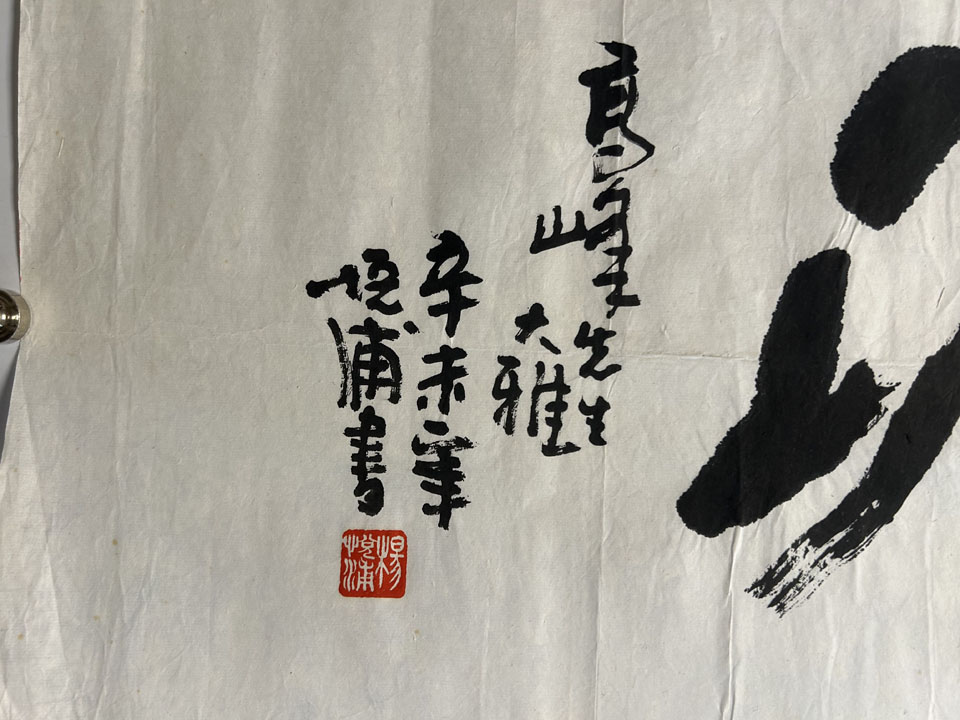 高峰先生
大雅
辛未年
悦浦書
楊悦浦